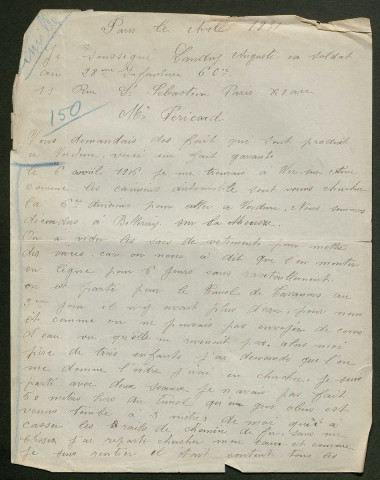 Paris le Avril 19
inédit
je Auguste ex soldat
au 28me Infanterie 6 Cie
11 Rue St Sebastien Paris XI arr
150
Mr Pericard
Vous demandais des fait que sont produit
a Verdun, voici un fait garanti
le 6 avril 1916 je me trouvais a Vic sur Aisne
comme les camions automobile sont venus chercher
la 6me division pour aller a Verdun, Nous sommes
descendus a sur la Meuse.
On a vider les sacs de vetements pour mettre
des vivres car on nous a dit que l'on monter
en ligne pour 6 jours sans ravitaillement.
on est partie pour le tunel de Tavannes au
3me jour il n'y avait plus d'eau pour nous
et comme on ne pouvais pas envoyer de corvé
d'eau vu qu'elle ne revenait pas. alors moi
père de trois enfants j'ai demander que l'on
me donne l'ordre j'irai en chercher. Je suis
parti avec deux sceaux je n'avais pas fait
60 metres hors du tunel qu'un gros obus est
venus tombé a 3 metres de moi qui a
casser les rails de chemin de fer, sans me
blesser j'ai reparti chercher mon eau et comme
je suis rentrer il était contents tous les